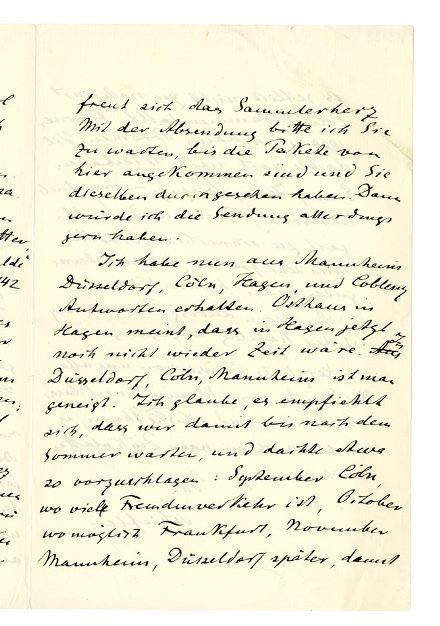 freut sich das Sammlerherz
Mit der Absendung bitte ich Sie
zu warten, bis die Pakete von
hier angekommen sind und Sie
dieselben durchgesehen haben. Dann
würde ich die Sendung allerdings
gern haben.
Ich habe nun aus Mannheim
Düsseldorf, Cöln, Hagen, und Coblenz
Antworten erhalten. Osthaus in
Hagen meint, dass in Hagen jetzt
noch nicht wieder Zeit wäre. Aus
Düsseldorf, Cöln, Mannheim ist man
geneigt. Ich glaube, es empfiehlt
sich, dass wir damit bis nach dem
Sommer warten, und dachte etwa
so vorzuschlagen: September Cöln,
wo viel Fremdenverkehr ist, October
womöglich Frankfurt, November
Mannheim, Düsseldorf später, damit